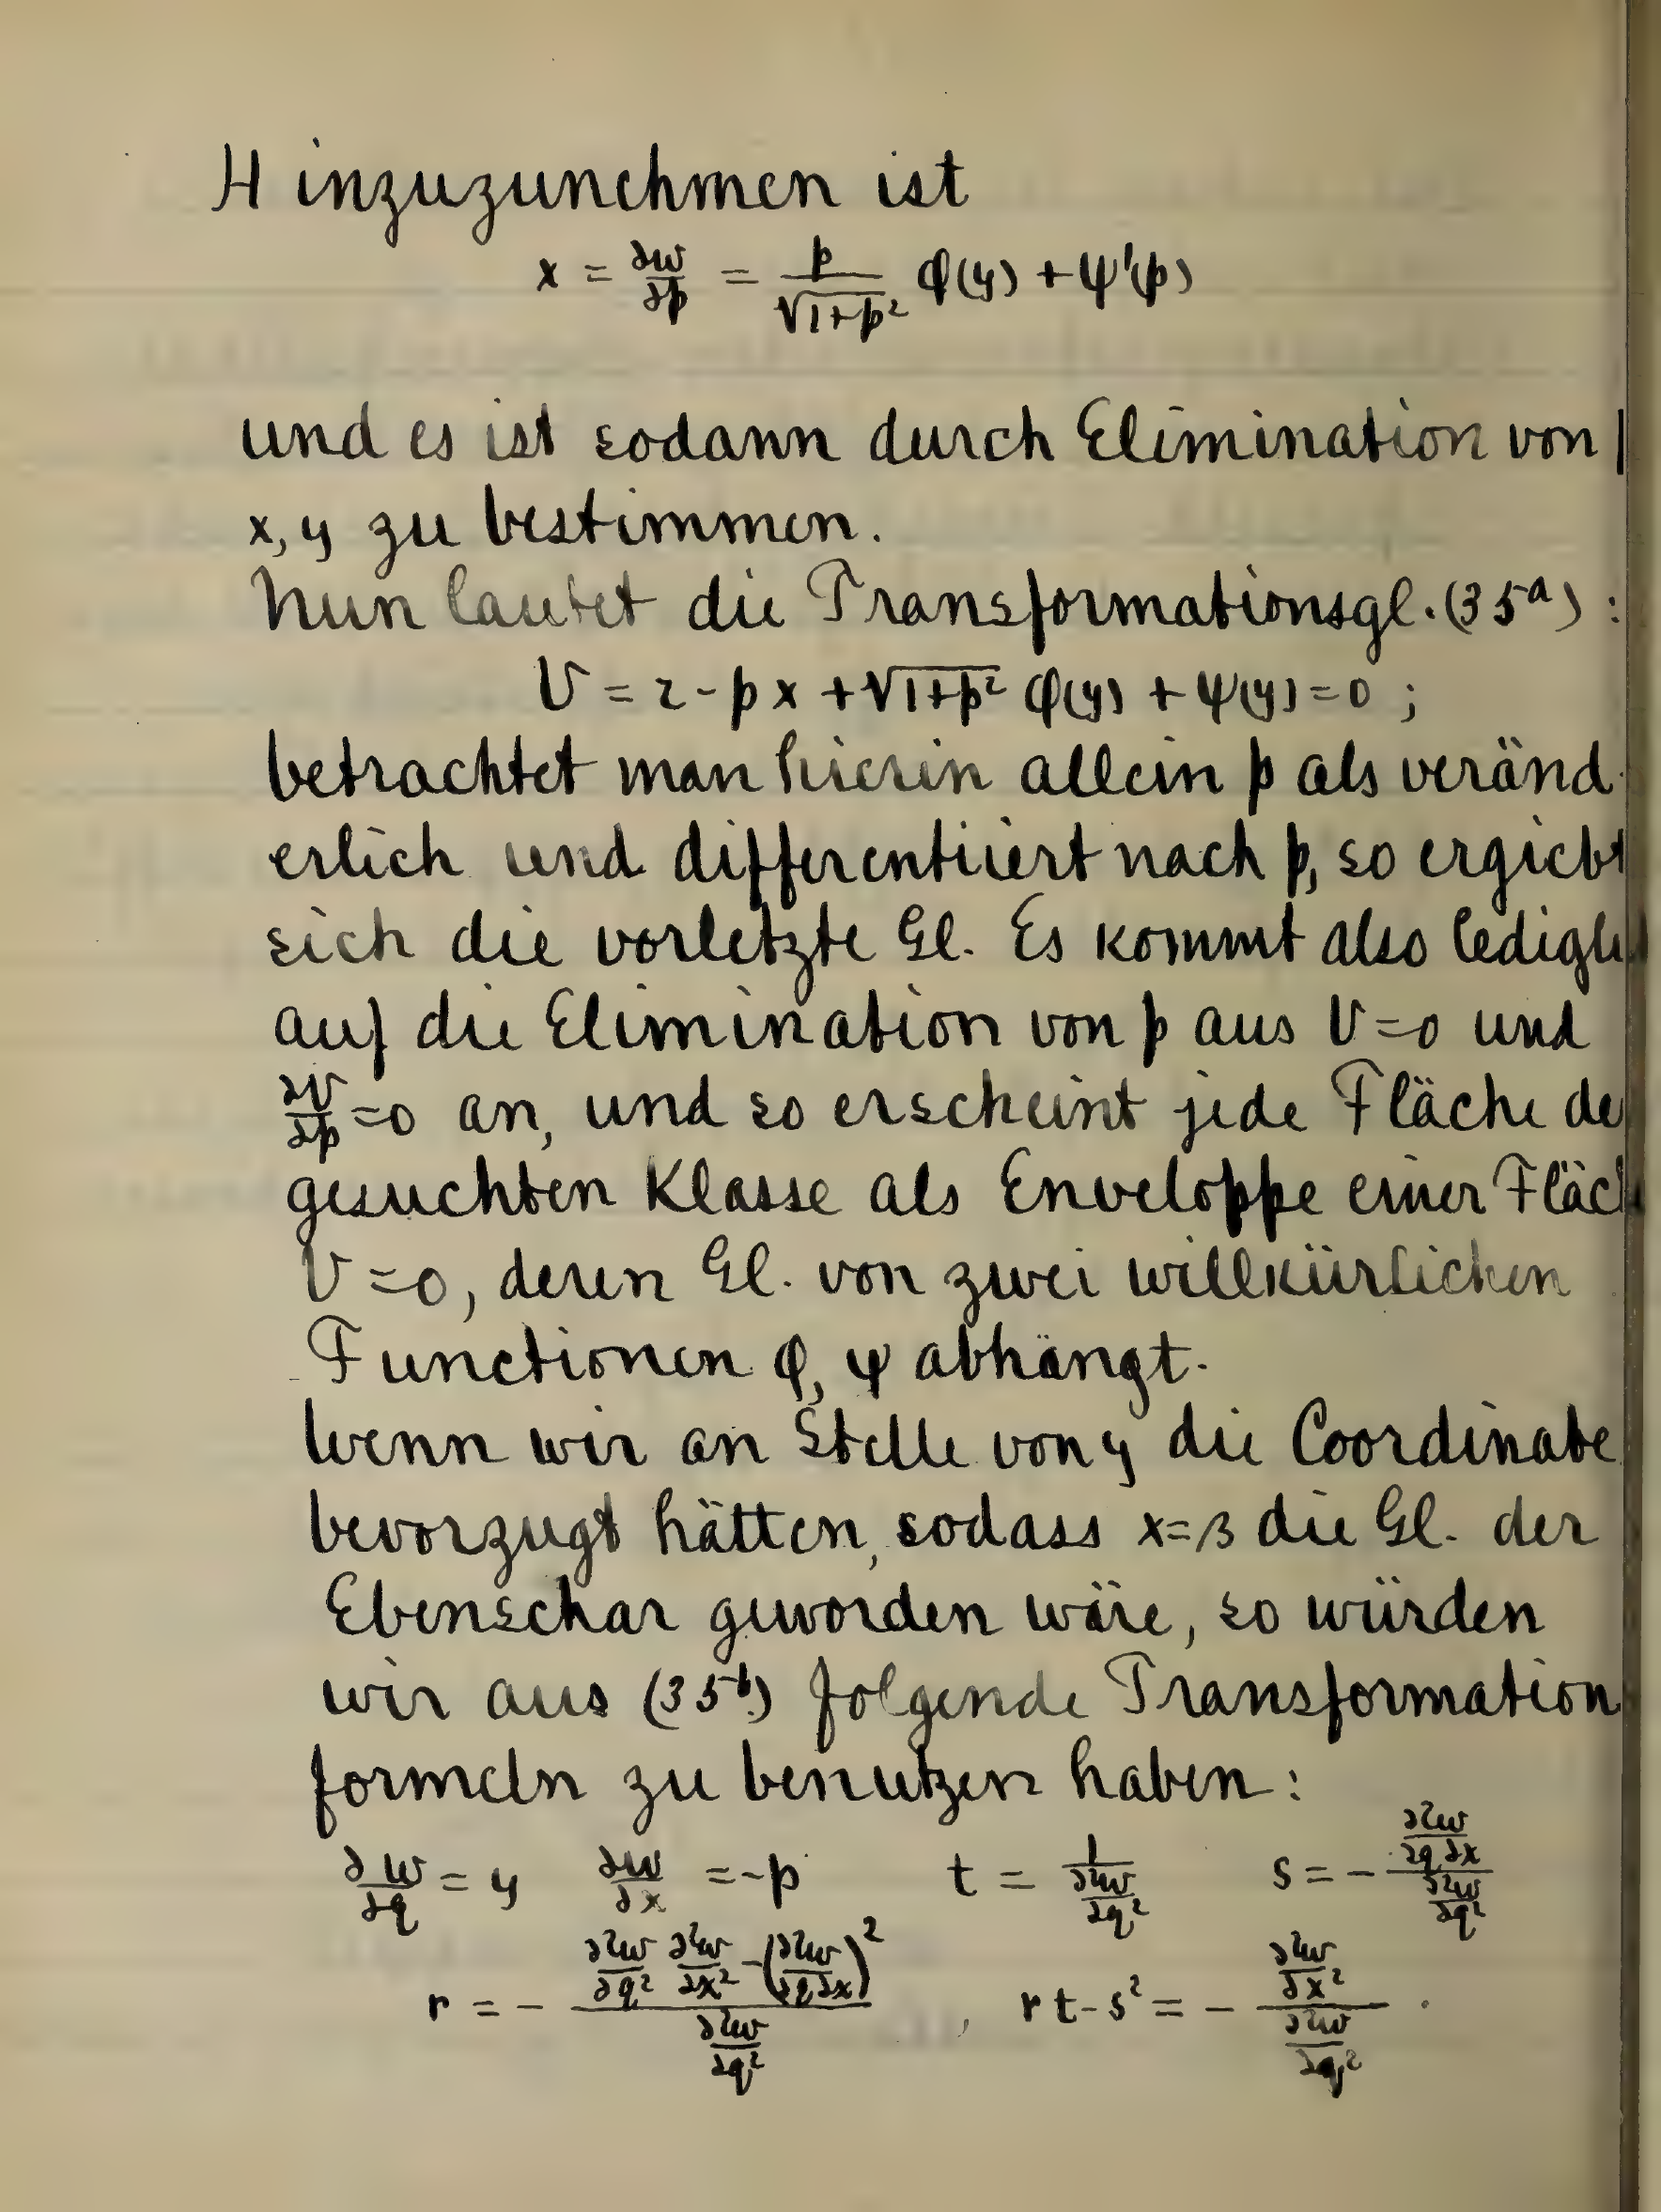 Hinzuzunehmen ist
x = ∂w/∂p = p/√(1+p²) φ(y) + ψ'(p)
und es ist sodann durch Elimination von
x, y zu bestimmen.
Nun lautet die Transformationsgl. (35ᵃ) :
V = z - px + √(1+p²) φ(y) + ψ(y) = 0 ;
betrachtet man hierin allein p als veränd-
erlich und differentiiert nach p, so ergiebt
sich die vorletzte Gl. Es kommt also ledigli
auf die Elimination von p aus V=0 und
∂V/∂p =0 an, und so erscheint jede Fläche de
gesuchten Klasse als Enveloppe einer Fläch
V=0, deren Gl. von zwei willkürlichen
Functionen φ, ψ abhängt.
Wenn wir an Stelle von y die Coordinate
bevorzugt hätten, sodass x=β die Gl. der
Ebenschar geworden wäre, so würden
wir aus (35ᵇ) folgende Transformation
formeln zu benutzen haben:
∂w/∂q = y ∂w/∂x = -p t = 1/(∂²w/∂q²) s = - (∂²w/∂q∂x)/(∂²w/∂q²)
r = - (∂²w/∂q² ∂²w/∂x² - (∂²w/∂q∂x)²)/(∂²w/∂q²) , rt-s² = - (∂²w/∂x²)/(∂²w/∂q²) .